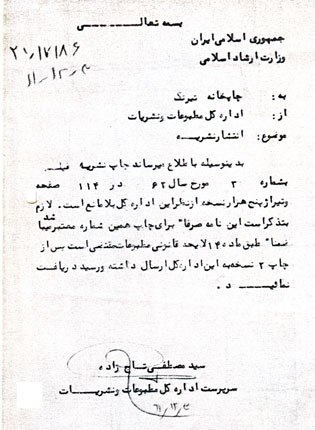 بسمه تعالــــی
جمهوری اسلامی ایران
وزارت ارشاد اسلامی
۲۱/۱۷۱۸۶
به : چاپخانه نیرنگ
از : اداره کل مطبوعات و نشریات
موضوع : انتشار نشریــه
بدینوسیله باطلاع میرساند چاپ نشریه فیلم
بشماره ۳ مورخ سال ۶۲ در ۱۱۴ صفحه
وتیراژ پنج هزار نسخه ازنظر این اداره کل بلامانع است. لازم
بتذکر است این نامه صرفا" برای چاپ همین شماره معتبر میباشد
ضمنا" طبق ماده ۱۴ لایحه قانونی مطبوعات مقتضی است پس از
چاپ ۲ نسخه به این اداره کل ارسال داشته و رسید دریافت
نمائیــــد .
سید مصطفی تــاج زاده
سرپرست اداره کل مطبوعات و نشریــات